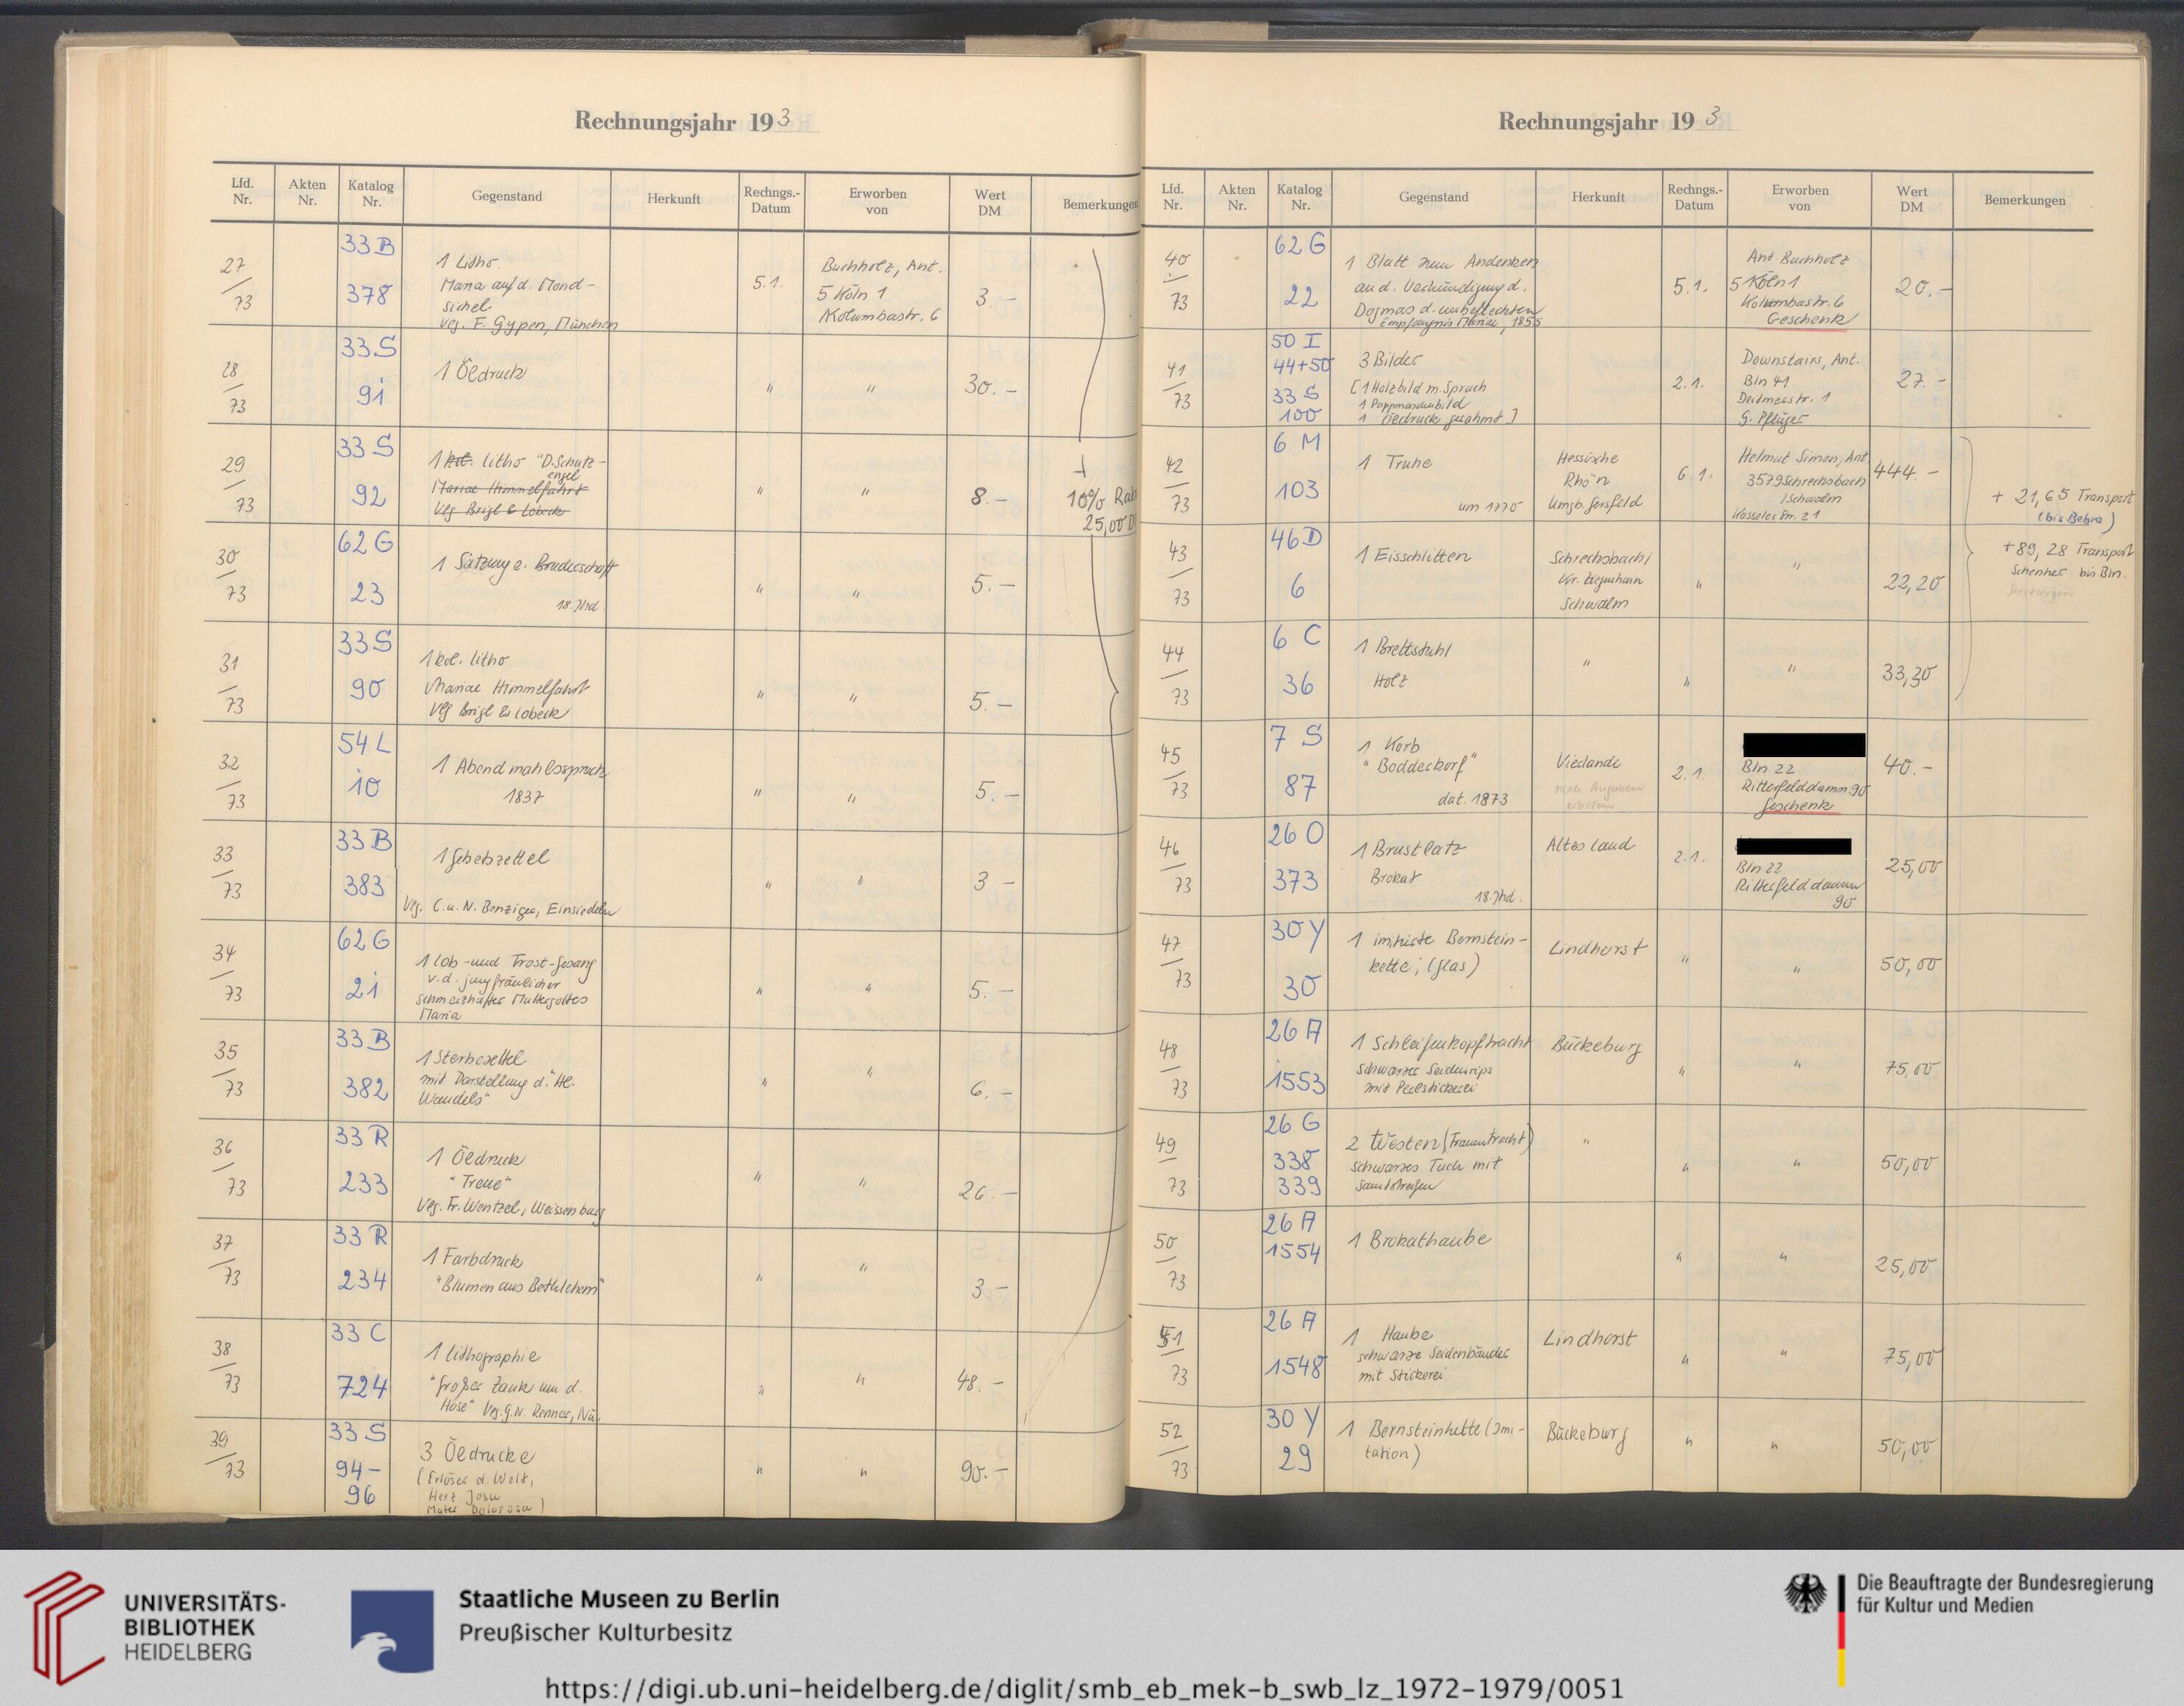 Rechnungsjahr 193
Lfd. Nr.
Akten Nr.
Katalog Nr.
Gegenstand
Herkunft
Rechngs.- Datum
Erworben von
Wert DM
Bemerkungen
27/73
33 B
378
1 Litho.
Maria auf d. Mond-
sichel
Vlg. F. Gypen, München
5.1.
Buchholz, Ant.
5 Köln 1
Kolumbastr. 6
3.-
28/73
33 S
91
1 Öldruck
"
"
30.-
29/73
33 S
92
1 kol. Litho "D. Schutz-
engel
Mariae Himmelfahrt
Vlg Brigl & Lobeck
"
"
8.-
+
10% Rab
25,00 D
30/73
62 G
23
1 Satzung e. Bruderschaft
18. Jhd.
"
"
5.-
31/73
33 S
90
1 kol. Litho
Mariae Himmelfahrt
Vlg Brigl & Lobeck
"
"
5.-
32/73
54 L
10
1 Abendmahlsspruch
1837
"
"
5.-
33/73
33 B
383
1 Gebetszettel
Vlg. C. u. N. Benziger, Einsiedeln
"
"
3 -
34/73
62 G
21
1 Lob- und Trost-Gesang
v. d. jungfräulicher
schmerzhafter Muttergottes
Maria
"
"
5.-
35/73
33 B
382
1 Sterbezettel
mit Darstellung d. "Hl.
Wandels"
"
"
6.-
36/73
33 R
233
1 Öldruck
"Treue"
Vlg. Fr. Wentzel, Weissenburg
"
"
26.-
37/73
33 R
234
1 Farbdruck
"Blumen aus Bethlehem"
"
"
3 -
38/73
33 C
724
1 Lithographie
"Großer Zank um d.
Hose" Vlg. G. N. Renner, Nü.
"
"
48.-
39/73
33 S
94-
96
3 Öldrucke
(Erlöser d. Welt,
Herz Jesu
Mater Dolorosa)
"
"
90.-
Rechnungsjahr 193
Lfd. Nr.
Akten Nr.
Katalog Nr.
Gegenstand
Herkunft
Rechngs.- Datum
Erworben von
Wert DM
Bemerkungen
40/73
62 G
22
1 Blatt zum Andenken
an d. Verkündigung d.
Dogmas d. unbefleckten
Empfängnis Mariae, 1855
5.1.
Ant. Buchholz
5 Köln 1
Kolumbastr. 6
Geschenk
20.-
41/73
50 I
44+50
33 S
100
3 Bilder
[1 Holzbild m. Spruch
1 Pappmascheebild
1 Öldruck gerahmt]
2.1.
Downstairs, Ant.
Bln 41
Deitmerstr. 1
G. Pflüger
27.-
42/73
6 M
103
1 Truhe
um 1770
Hessische
Rhön
Umgb. Gersfeld
6.1.
Helmut Simon, Ant.
3579 Schrecksbach
/Schwalm
Kasseler Str. 21
444.-
+ 21,65 Transport
(bis Bebra)
+ 89,28 Transport
Schenker bis Bln.
43/73
46 D
6
1 Eisschlitten
Schrecksbach/
Kr. Ziegenhain
Schwalm
"
"
22,20
44/73
6 C
36
1 Brettstuhl
Holz
"
"
"
33,30
45/73
7 S
87
1 Korb
"Bodderkorf"
dat. 1873
Vierlande
2.1
Bln 22
Ritterfelddamm 90
Geschenk
40.-
46/73
26 O
373
1 Brustlatz
Brokat
18. Jhd.
Altes Land
2.1.
Bln 22
Ritterfelddamm
90
25,00
47/73
30 Y
30
1 imitierte Bernstein-
kette, (Glas)
Lindhorst
"
"
50,00
48/73
26 A
1553
1 Schleifenkopftracht
schwarzer Seidenrips
mit Perlstickerei
Bückeburg
"
"
75,00
49/73
26 G
338
339
2 Westen (Frauentracht)
schwarzes Tuch mit
Samtstreifen
"
"
"
50,00
50/73
26 A
1554
1 Brokathaube
"
"
25,00
51/73
26 A
1548
1 Haube
schwarze Seidenbänder
mit Stickerei
Lindhorst
"
"
75,00
52/73
30 Y
29
1 Bernsteinkette (Imi-
tation)
Bückeburg
"
"
50,00
UNIVERSITÄTS-
BIBLIOTHEK
HEIDELBERG
Staatliche Museen zu Berlin
Preußischer Kulturbesitz
Die Beauftragte der Bundesregierung
für Kultur und Medien
https://digi.ub.uni-heidelberg.de/diglit/smb_eb_mek-b_swb_lz_1972-1979/0051